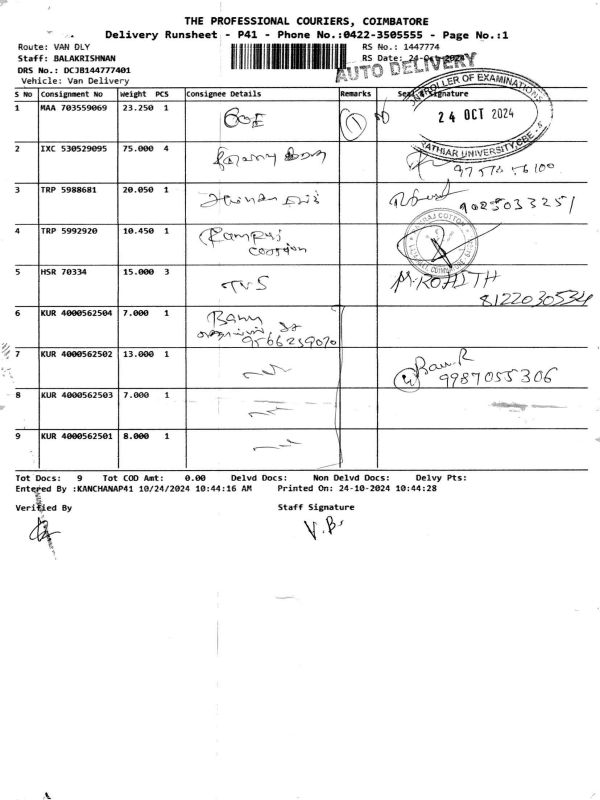 THE PROFESSIONAL COURIERS, COIMBATORE
Delivery Runsheet - P41 - Phone No.:0422-3505555 - Page No.:1
Route: VAN DLY
RS No.: 1447774
Staff: BALAKRISHNAN
RS Date: 24-Oct-2024
DRS No.: DCJB144777401
AUTO DELIVERY
Vehicle: Van Delivery
CONTROLLER OF EXAMINATIONS
24 OCT 2024
S No Consignment No Weight PCS Consignee Details Remarks Seal & Signature
1 MAA 703559069 23.250 1 COE 1
2 IXC 530529095 75.000 4
3 TRP 5988681 20.050 1 9025033251
4 TRP 5992920 10.450 1
5 HSR 70334 15.000 3 TVS M.ROHITH
8122030534
6 KUR 4000562504 7.000 1 Banu
9566259070
7 KUR 4000562502 13.000 1 4 Banu.R
9987055306
8 KUR 4000562503 7.000 1
9 KUR 4000562501 8.000 1
Tot Docs: 9 Tot COD Amt: 0.00 Delvd Docs: Non Delvd Docs: Delvy Pts:
Entered By :KANCHANAP41 10/24/2024 10:44:16 AM Printed On: 24-10-2024 10:44:28
Verified By Staff Signature
V.B